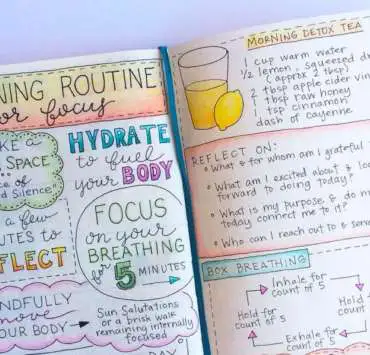 NING ROUTINE
or focus
KE A
SPACE
ce of
d Silence!
HYDRATE
to fuel
your BODY
a few
UTES to
FLECT
FOCUS
on your
BREATHING
for 5 MINUTES
NDFULLY
move
OUR BODY
Sun Salutations
or a brisk walk
remaining internally
focused
DAY
MORNING DETOX TEA
1 cup warm water
1/2 lemon, squeezed dr
(approx 2 tbsp)
2 tbsp apple cider vin
1 tbsp raw honey
1 tsp cinnamon
dash of cayenne
REFLECT ON:
• What & for whom am I grateful
• What am I excited about & loo
forward to doing today?
• What is my purpose, & do m
today connect me to it?
• Who can I reach out to & serv
BOX BREATHING
Inhale for
count of 5
Hold for
count of 5
Hold
count
Exhale for
count of 5